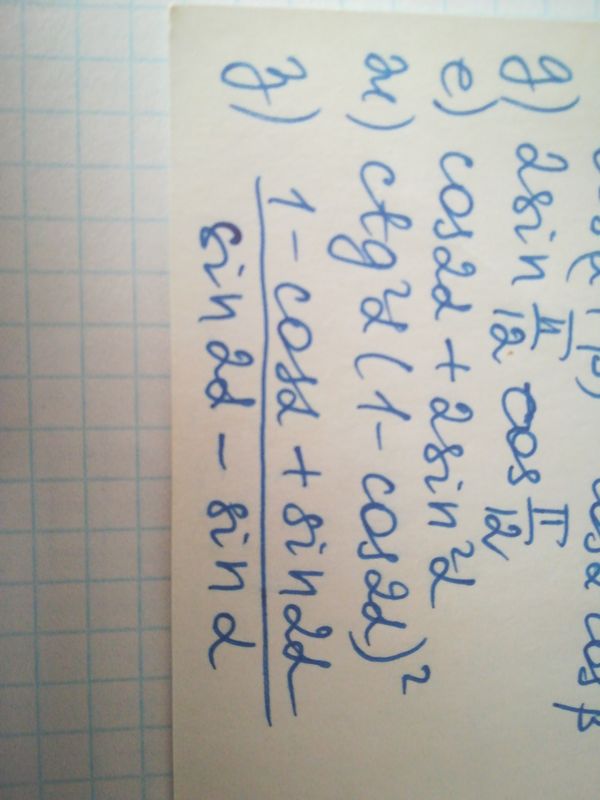 д) 2sin π/12 cos π/12
е) cos2α + 2sin²α
ж) ctg²α (1 - cos2α)²
з) 1 - cosα + sin2α
sin2α - sinα